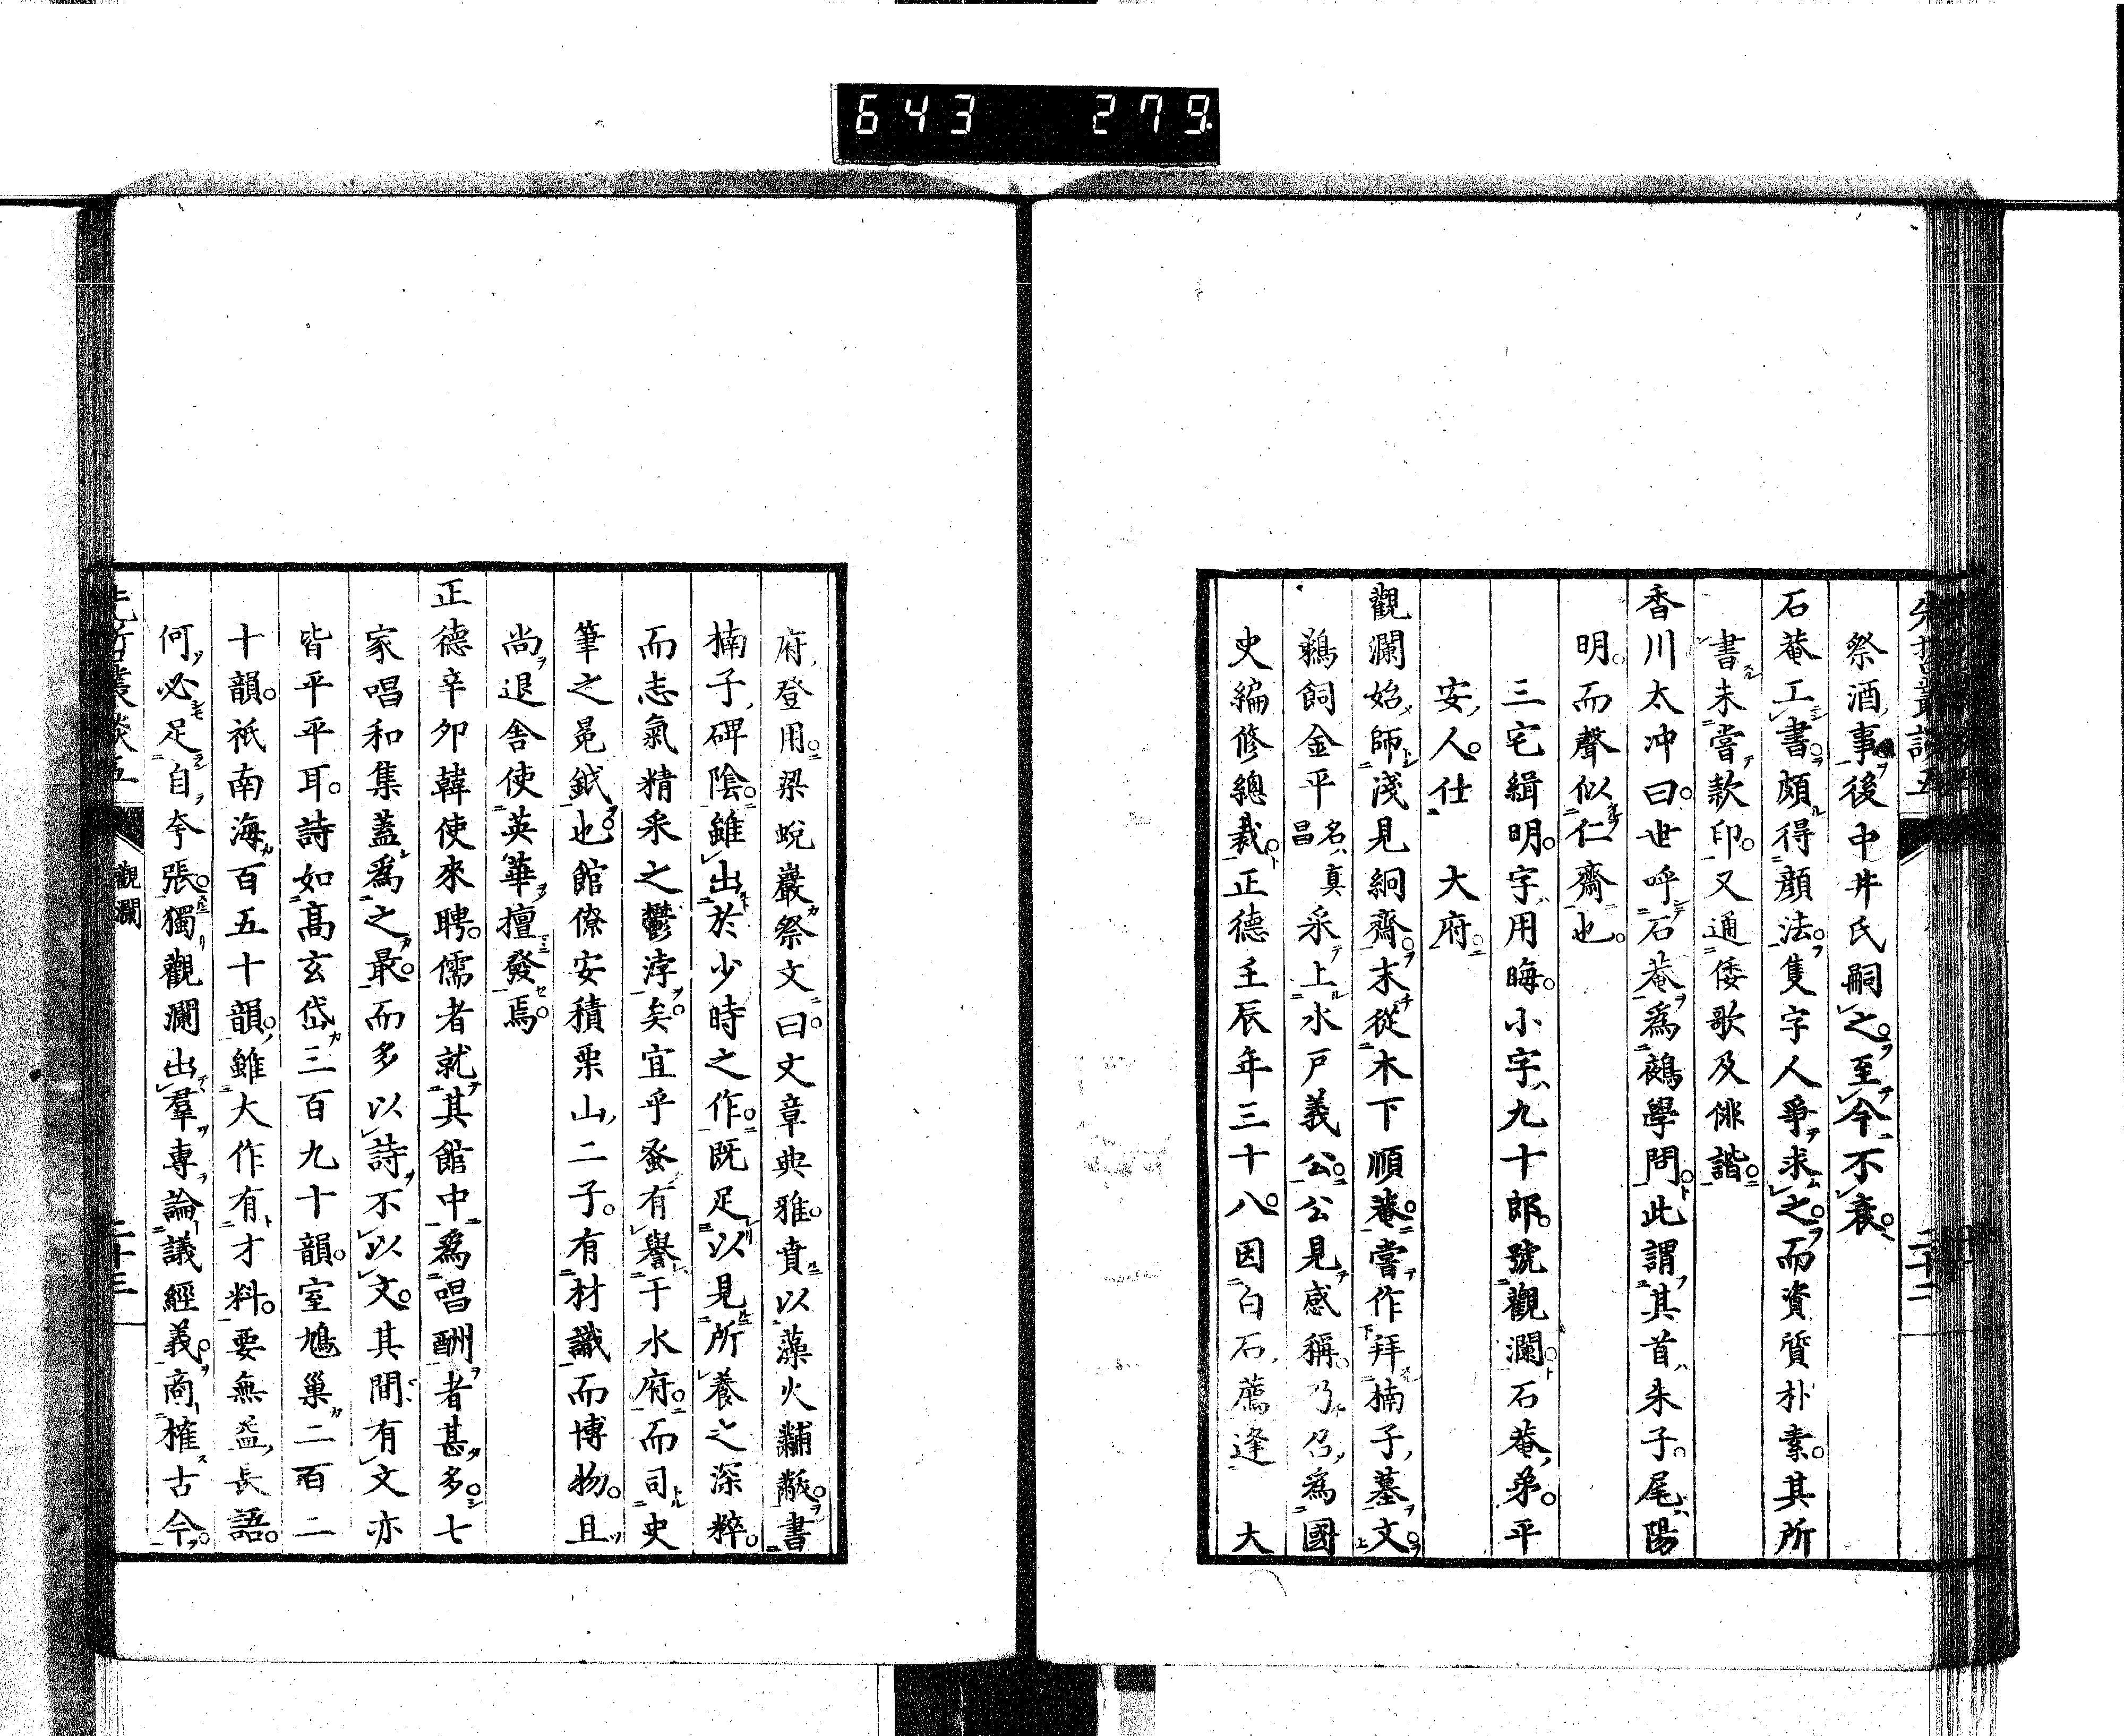 643 279
祭酒事後中井氏嗣之至今不衰
石菴工書頗得顏法隻字人爭求之而資質朴素其所
書未嘗款印又通倭歌及俳諧
香川太冲曰世呼石菴爲鵺學問此謂其首朱子尾陽
明而聲似仁齋也
三宅緝明字用晦小字九十郎號觀瀾石菴弟平
安人仕　大府
觀瀾始師淺見絅齋末從木下順菴嘗作拜楠子墓文
鵜飼金平名真昌采上水戶義公公見感稱乃召爲國
史編修總裁正德壬辰年三十八因白石薦逢　大
府登用梁蛻巖祭文曰文章典雅賁以藻火黼黻書
楠子碑陰雖出於少時之作既足以見所養之深粹
而志氣精采之鬱浡矣宜乎蚤有譽于水府而司史
筆之晃鉞也館僚安積栗山二子有材識而博物且
尚退舍使英華擅發焉
正德辛卯韓使來聘儒者就其館中爲唱酬者甚多七
家唱和集蓋爲之最而多以詩不以文其間有文亦
皆平平耳詩如高玄岱三百九十韻室鳩巢二百二
十韻祇南海百五十韻雖大作有才料要無益長語
何必足自夸張獨觀瀾出羣專論議經義商榷古今
先哲叢談五　觀瀾　二十三